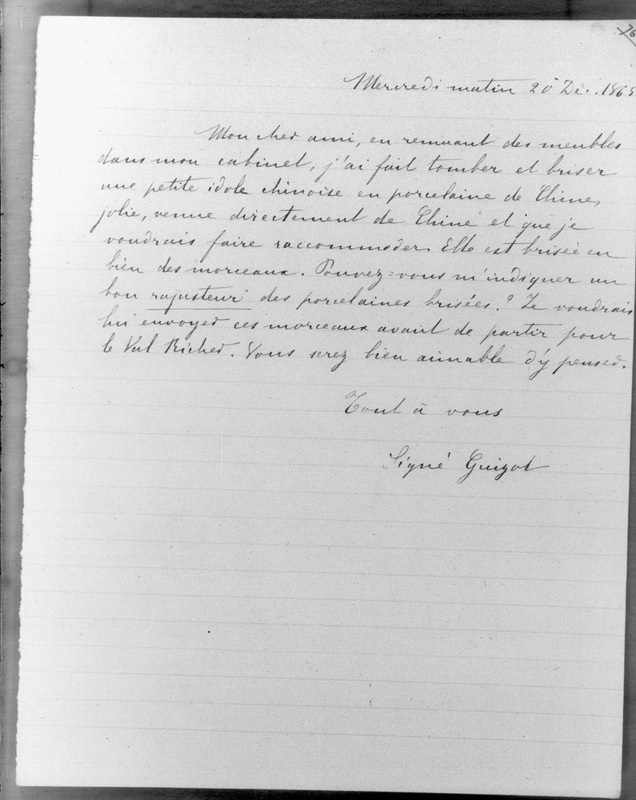 76
Mercredi matin 20 Déc. 1865
Mon cher ami, en remuant des meubles
dans mon cabinet, j'ai fait tomber et briser
une petite idole chinoise en porcelaine de Chine,
jolie, venue directement de Chine et que je
voudrais faire raccommoder. Elle est brisée en
bien des morceaux. Pouvez-vous m'indiquer un
bon rajusteur des porcelaines brisées? Je voudrais
lui envoyer ces morceaux avant de partir pour
le Val Richer. Vous serez bien aimable d'y penser.
Tout à vous
Signé Guizot